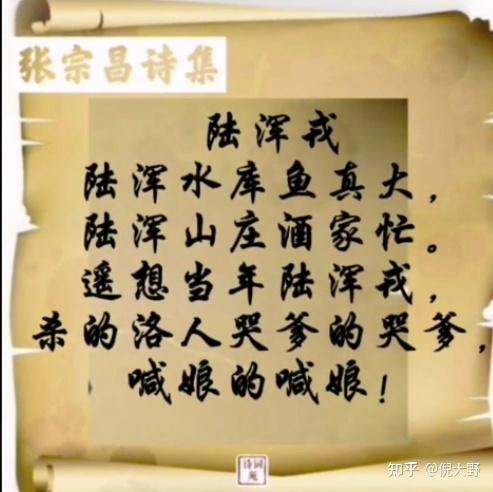 张宗昌诗集
陆浑戎
陆浑水库鱼真大，
陆浑山庄酒家忙。
遥想当年陆浑戎，
杀的洛人哭爹的哭爹，
喊娘的喊娘！
诗词苑
知乎 @倪大野